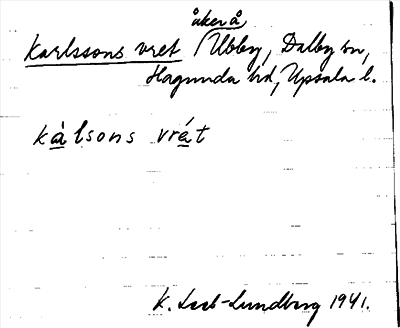 åker å
Karlssons vret / Ubby, Dalby sn,
Hagunda hd, Upsala l.
kàlsons vrét
K. Leeb-Lundberg 1941.